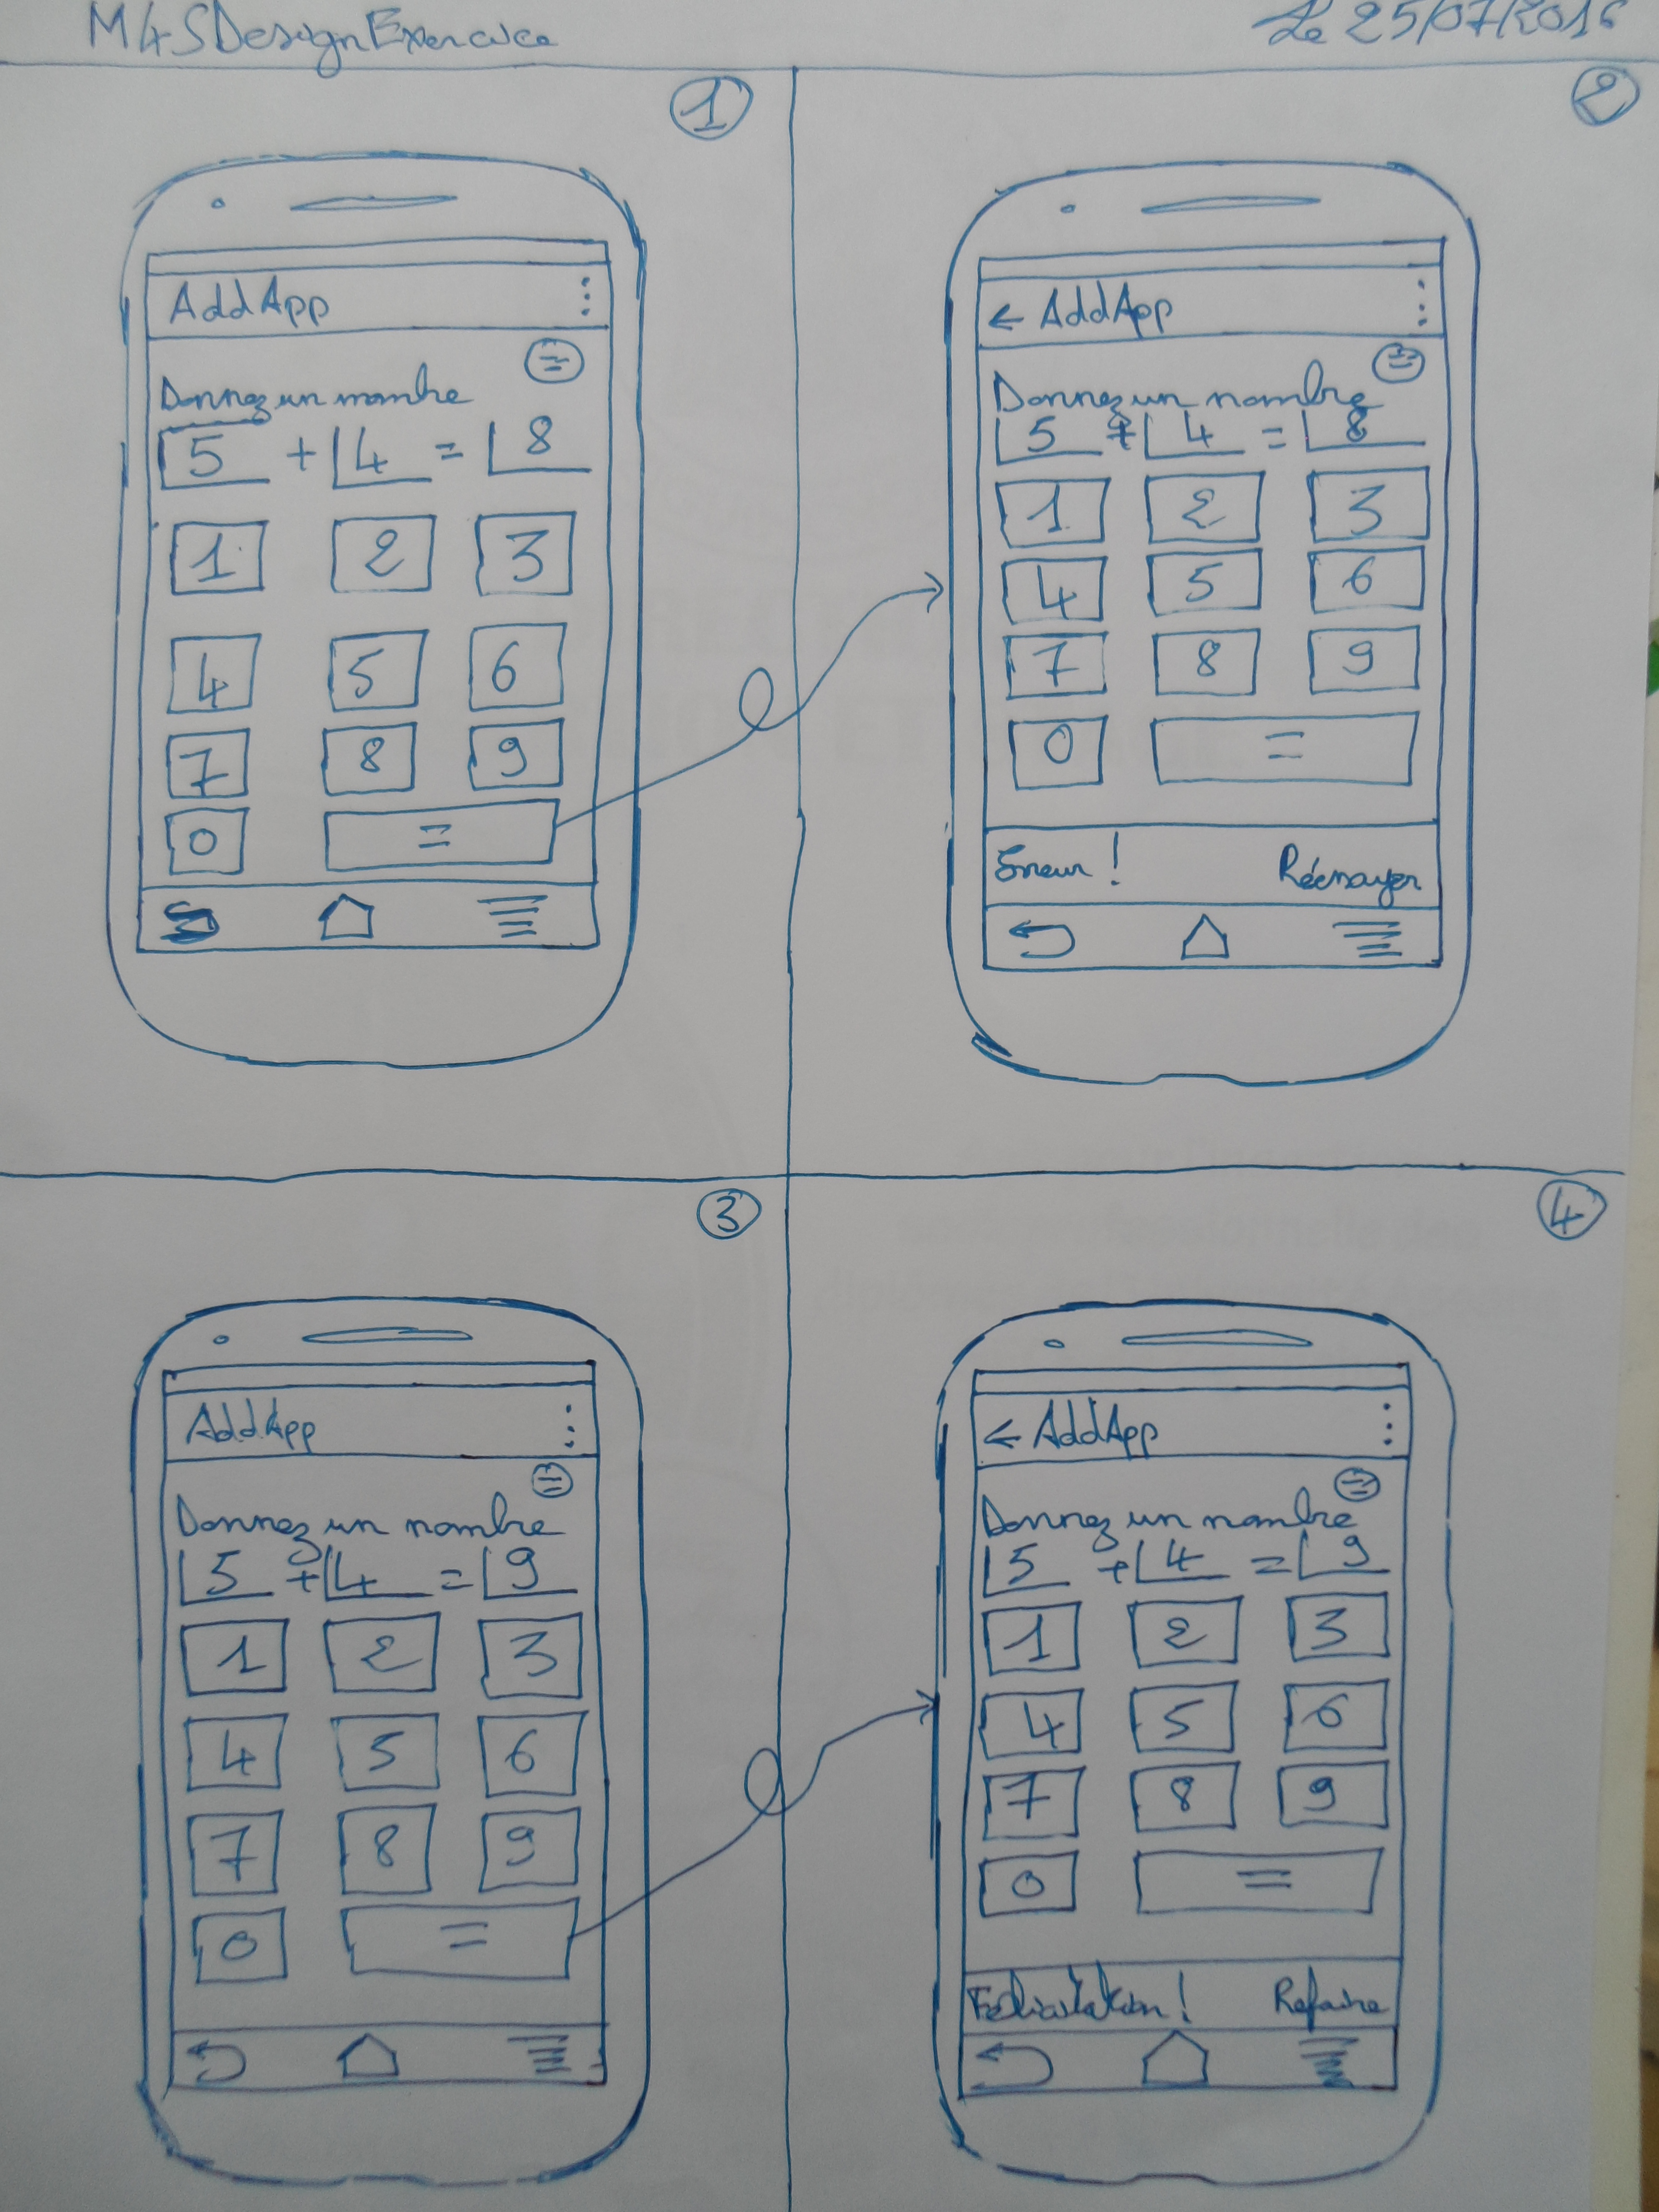 M4SDesignExercice
Le 25/07/2016
1
AddApp
Donnez un nombre
5 + 4 = 8
1 2 3
4 5 6
7 8 9
0 =
2
← AddApp
Donnez un nombre
5 + 4 = 8
1 2 3
4 5 6
7 8 9
0 =
Erreur ! Réessayer
3
AddApp
Donnez un nombre
5 + 4 = 9
1 2 3
4 5 6
7 8 9
0 =
4
← AddApp
Donnez un nombre
5 + 4 = 9
1 2 3
4 5 6
7 8 9
0 =
Félicitation ! Refaire